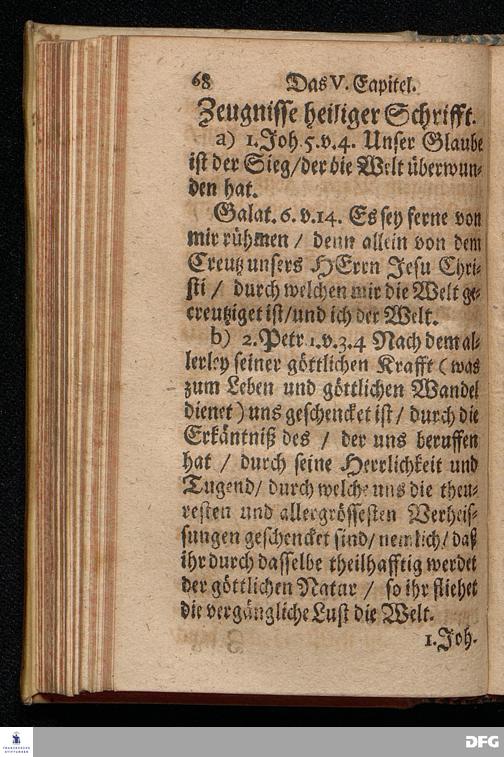 68 Das V. Capitel.
Zeugnisse heiliger Schrifft.
a) 1. Joh. 5. v. 4. Unser Glaube
ist der Sieg/ der die Welt überwun-
den hat.
Galat. 6. v. 14. Es sey ferne von
mir rühmen / denn allein von dem
Creutz unsers HErrn Jesu Chri-
sti / durch welchen mir die Welt ge-
creutziget ist/ und ich der Welt.
b) 2. Petr. 1. v. 3. 4 Nach dem al-
lerley seiner göttlichen Krafft ( was
zum Leben und göttlichen Wandel
dienet ) uns geschencket ist / durch die
Erkäntniß des / der uns beruffen
hat / durch seine Herrlichkeit und
Tugend/ durch welche uns die theu-
resten und allergrössesten Verheis-
sungen geschencket sind/ nemlich/ daß
ihr durch dasselbe theilhafftig werdet
der göttlichen Natur / so ihr fliehet
die vergängliche Lust die Welt.
1. Joh.
FRANCKESCHE
STIFTUNGEN
DFG